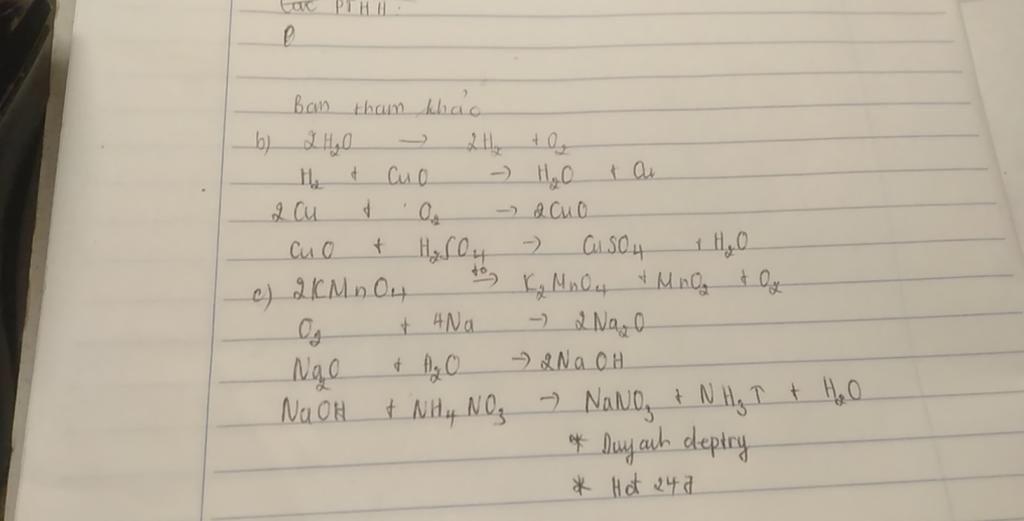 các PTHH.
P
Bạn tham khảo
b) 2H₂O → 2H₂ + O₂
H₂ + CuO → H₂O + Cu
2Cu + O₂ → 2CuO
CuO + H₂SO₄ → CuSO₄ + H₂O
c) 2KMnO₄ t° → K₂MnO₄ + MnO₂ + O₂
O₂ + 4Na → 2Na₂O
Na₂O + H₂O → 2NaOH
NaOH + NH₄NO₃ → NaNO₃ + NH₃↑ + H₂O
* Duyanh deptry
*